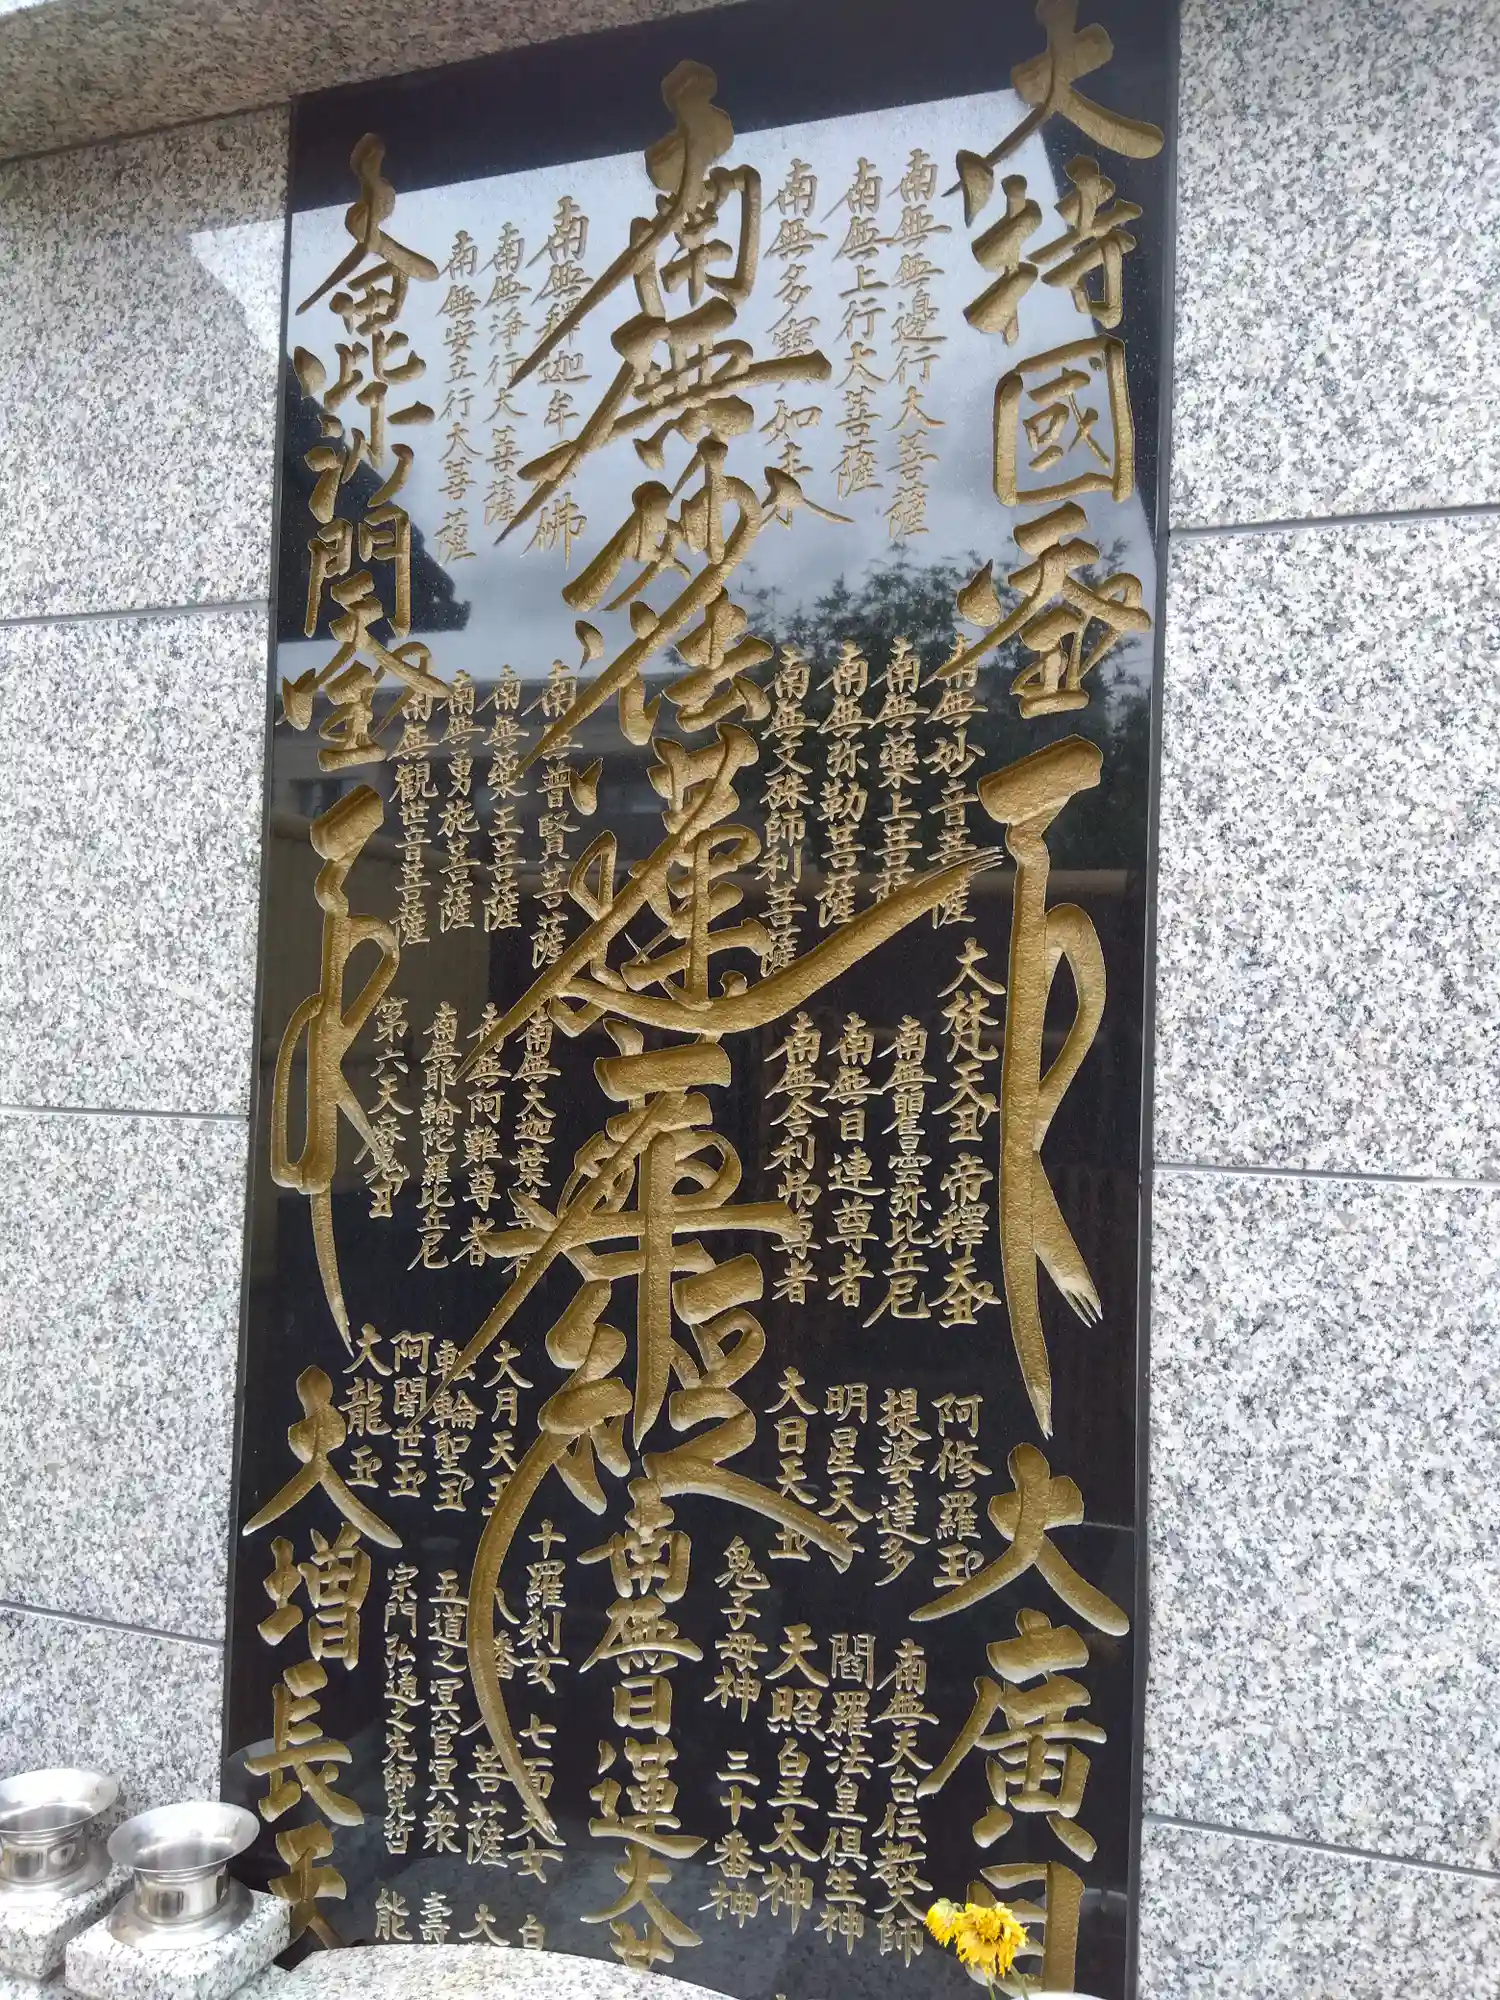 大持國天王
南無無邊行大菩薩
南無上行大菩薩
南無多寶如来
南無妙法蓮華經
南無釋迦牟尼佛
南無浄行大菩薩
南無安立行大菩薩
大毘沙門天王
南無妙音菩薩
南無藥上菩薩
南無弥勒菩薩
南無文殊師利菩薩
南無普賢菩薩
南無薬王菩薩
南無勇施菩薩
南無観世音菩薩
大梵天王 帝釋天王
南無瞿曇弥比丘尼
南無目連尊者
南無舎利弗尊者
南無大迦葉尊者
南無阿難尊者
南無耶輸陀羅比丘尼
第六天魔王
阿修羅王
提婆達多
明星天子
大日天王
大月天王
転輪聖王
阿闍世王
大龍王
大廣目
南無天台伝教大師
閻羅法皇倶生神
天照皇太神
鬼子母神 三十番神
南無日蓮大菩
十羅刹女 七面大女 白
八幡大菩薩 大
五道之冥官冥衆 壽
宗門弘通之先師先哲 能
大増長天